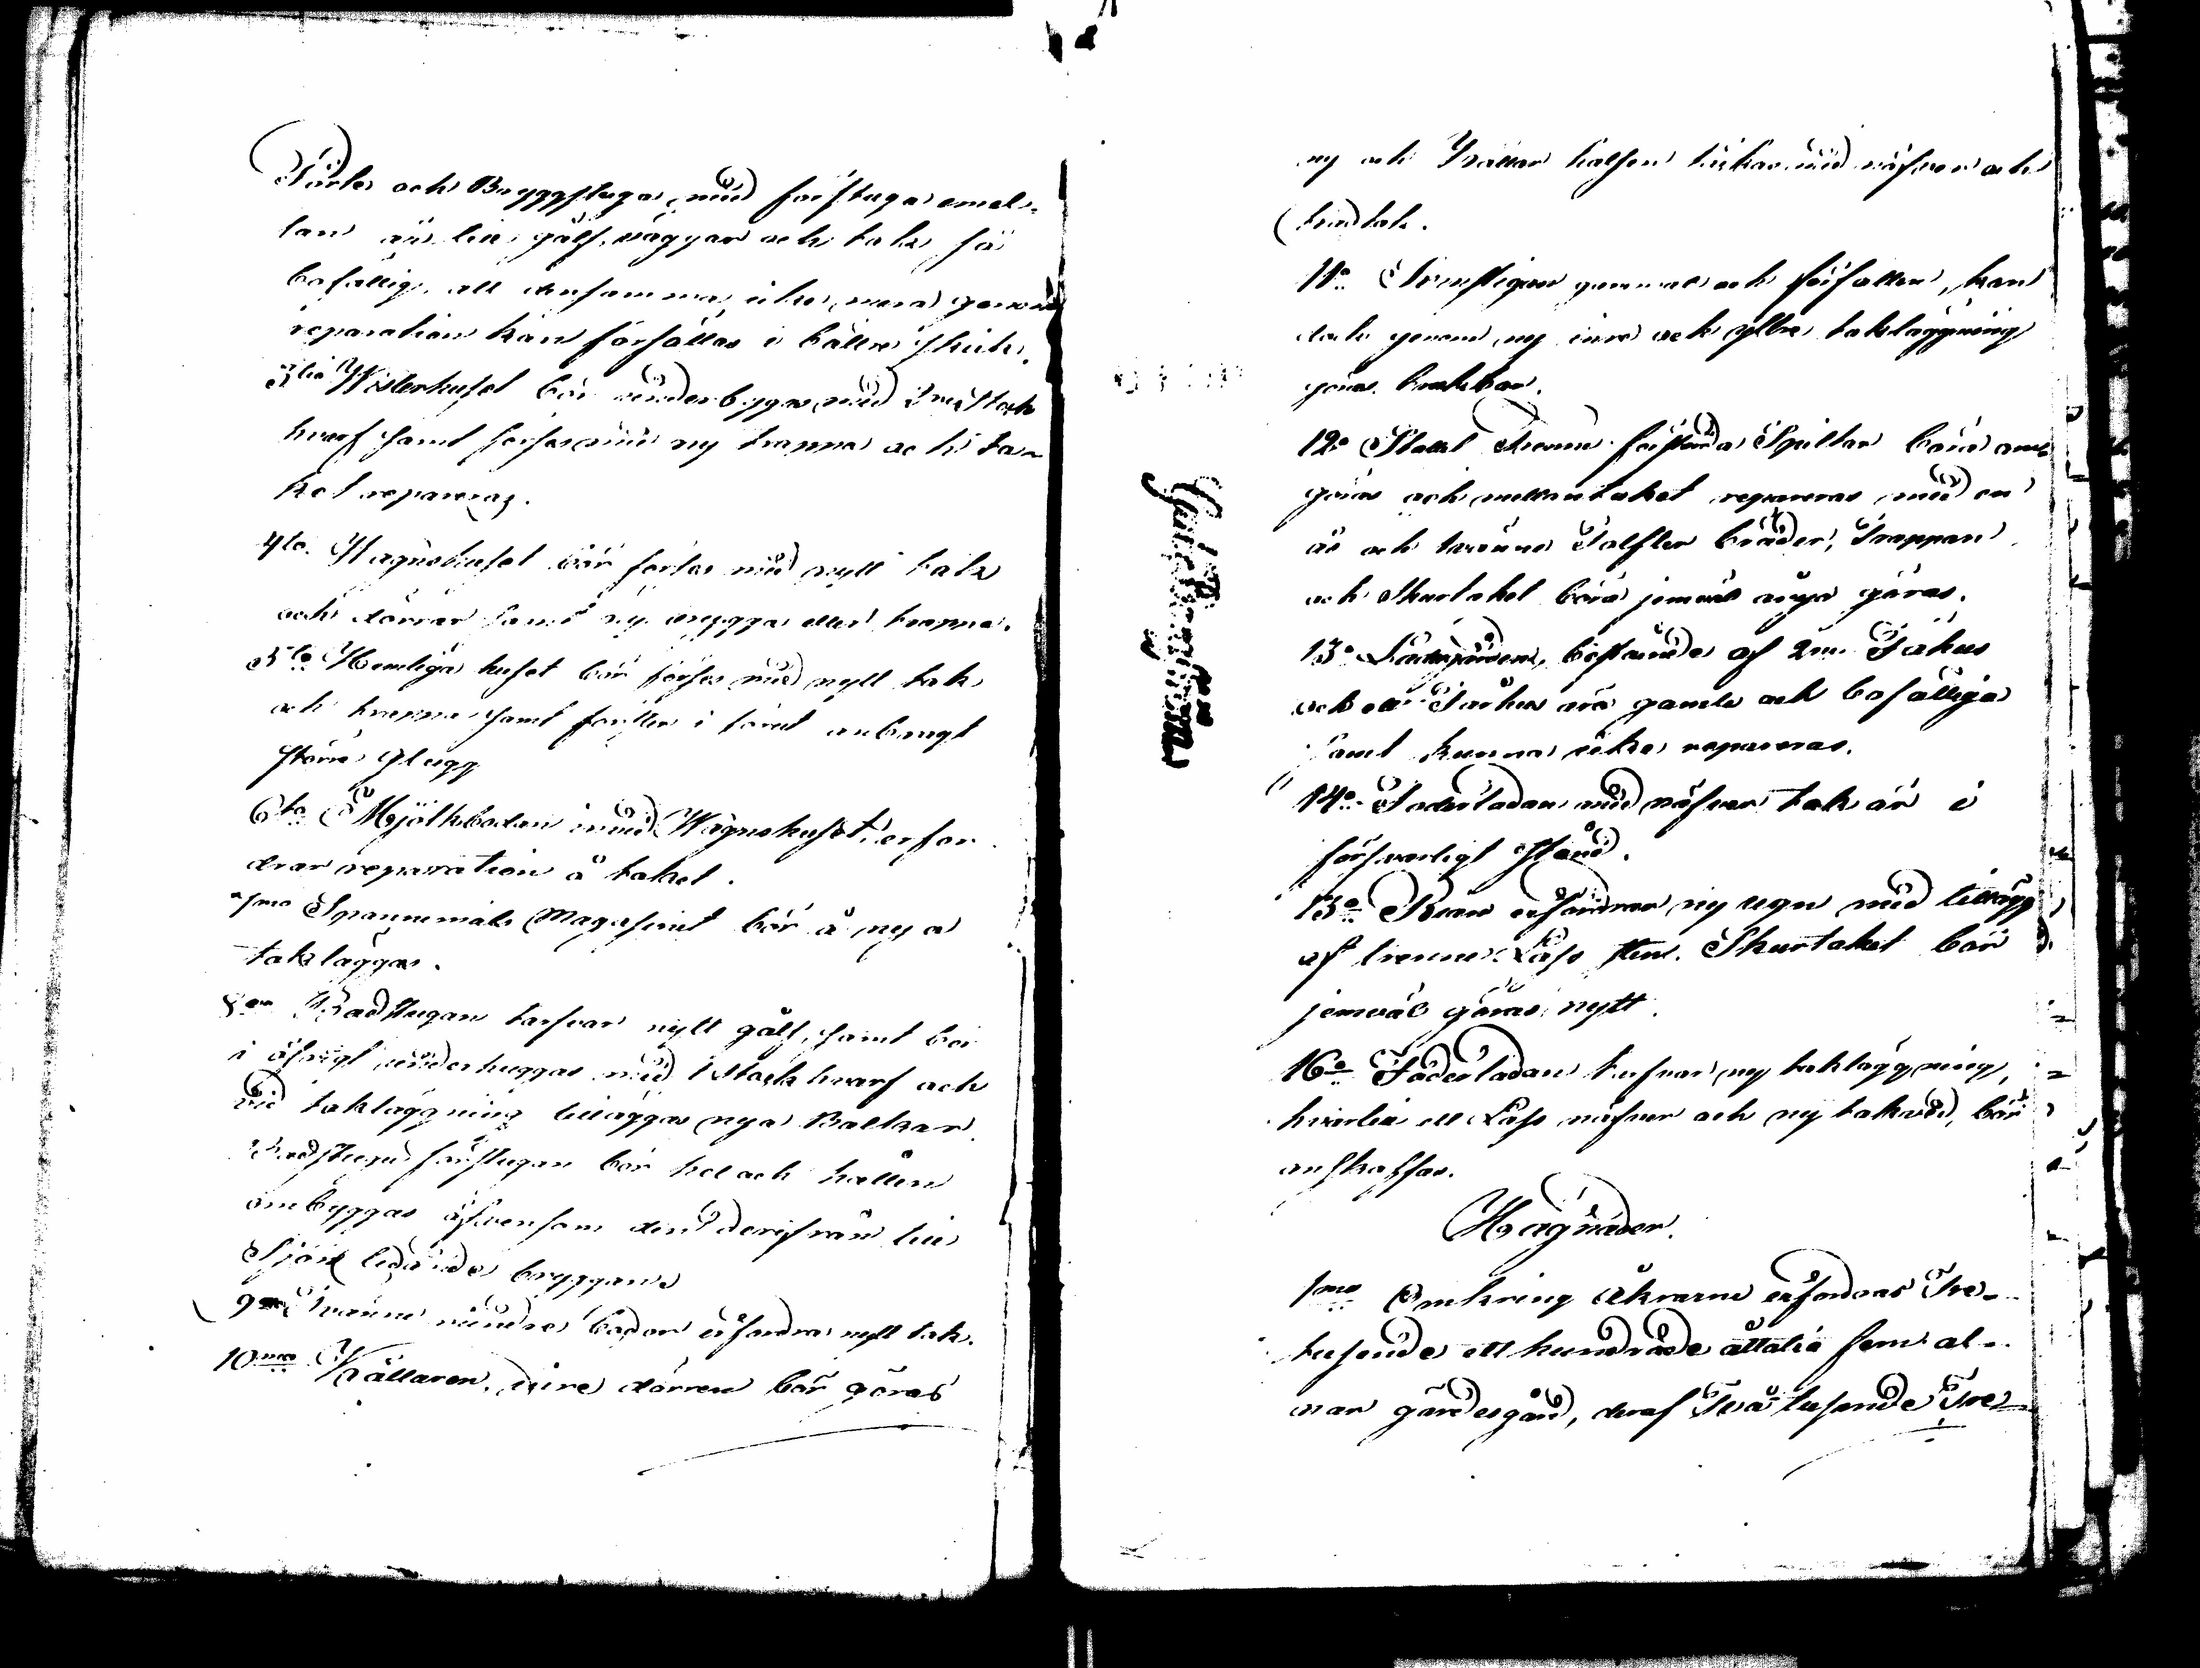 Pörte och Bryggstuga, med förstuga emel-
lan är till gålf, väggar och tak så
bofällig, att densamma icke mera genom
reparation kan försättas i bättre skick.
3tio Wisterhuset bör underbyggas med 2ne Stock
hvarf samt förses med ny trappa och ta-
ket repareras.
4to. Wagnshuset bör förses med nytt tak
och dörrar samt ny brygga eller trappa.
5to Hemliga huset bör förses med nytt tak
och trappa samt fönster i förut anbragt
större glugg
6to Mjölkboden invid Wagnshuset, erfor-
drar reparation å taket.
7mo Spannemåls Magasinet bör å nyo
takläggas.
8vo Badstugan tarfvar nytt gålf, samt bör
i öfrigt underhuggas med 1 Stock hvarf och
vid takläggning tilläggas nya Balkar.
Badstugu förstugan bör hel och hållen
ombyggas äfvensom den derifrån till
Sjön ledande bryggan.
9no Tvänne mindre bodar erfordra nytt tak.
10mo Källaren, inre dörren bör göras
ny och Källar halsen täckas med näfver och
vedtak.
11o gammal och förfallen, kan
dock genom ny inre och yttre takläggning
göras brukbar.
12o Stall Spiltar böra om-
göras och mellantaket repareras med en
ås och tvänne Talfter bräder, Trappan
och Skurtaket böra jemväl nya göras.
13o bestående af 2ne Fähus
och ett Fårhus äro gamla och bofälliga
samt kunna icke repareras.
14o Foderladan med näfver tak är i
försvarligt stånd.
15o Rian erfordrar ny ugn med tillägg
af trenne Lass sten. Skurtaket bör
jemväl göras nytt.
16o Foderladan tarfvar ny takläggning,
hvartill ett Lass näfver och ny takved, bör
anskaffas.
Hägnader.
1mo Omkring Åkrarne erfordras Tre-
tusende ett hundrade åttatio fem al-
nar gärdesgård, deraf Två tusende Tre-